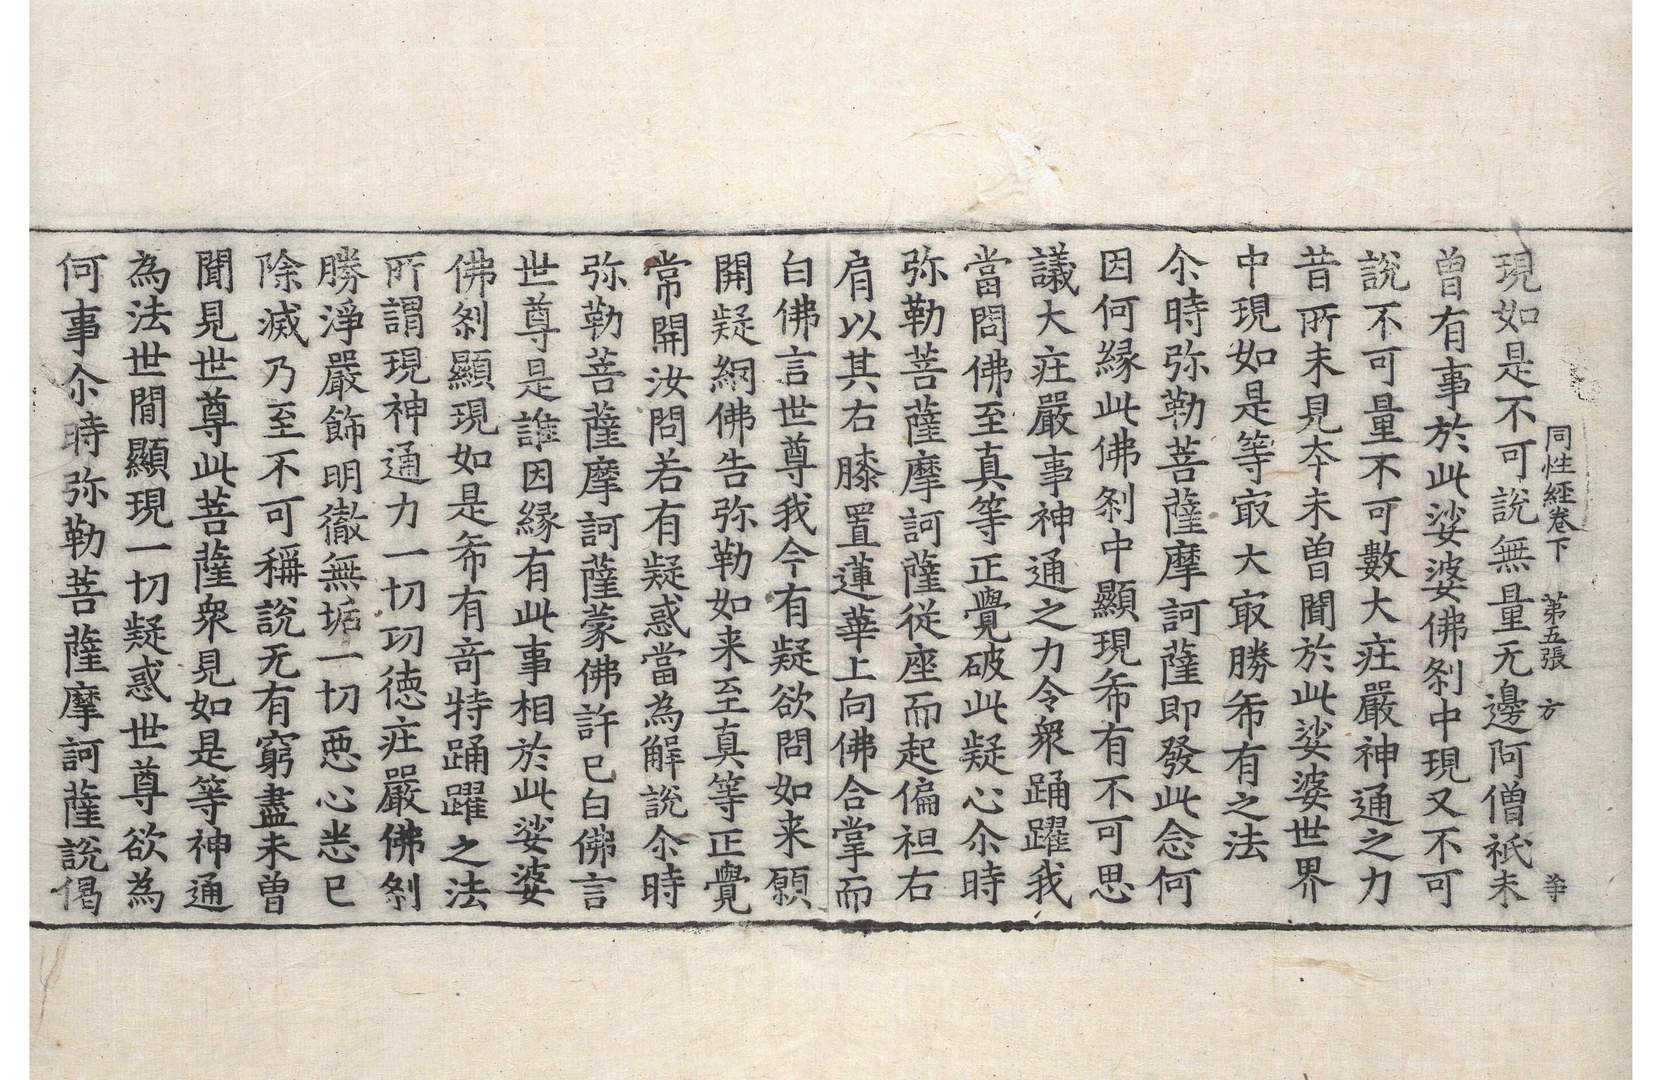 同性經卷下 第五張 方
現如是不可說無量无邊阿僧祇未
曾有事於此娑婆佛刹中現又不可
說不可量不可數大疘嚴神通之力
昔所未見夲未曾聞於此娑婆世界
中現如是等㝡大㝡勝希有之法
尒時弥勒菩薩摩訶薩即發此念何
因何縁此佛刹中顯現希有不可思
議大疘嚴事神通之力令衆踊躍我
當問佛至真等正覺破此疑心尒時
弥勒菩薩摩訶薩從座而起偏袒右
肩以其右膝置蓮華上向佛合掌而
白佛言世尊我今有疑欲問如来願
開疑網佛告弥勒如来至真等正覺
常開汝問若有疑惑當為解說尒時
弥勒菩薩摩訶薩蒙佛許已白佛言
世尊是誰因縁有此事相於此娑婆
佛刹顯現如是希有竒特踊躍之法
所謂現神通力一切功徳疘嚴佛刹
勝淨嚴飾明徹無垢一切惡心恙已
除滅乃至不可稱說无有窮盡未曾
聞見世尊此菩薩衆見如是等神通
為法世間顯現一切疑惑世尊欲為
何事尒時弥勒菩薩摩訶薩說偈